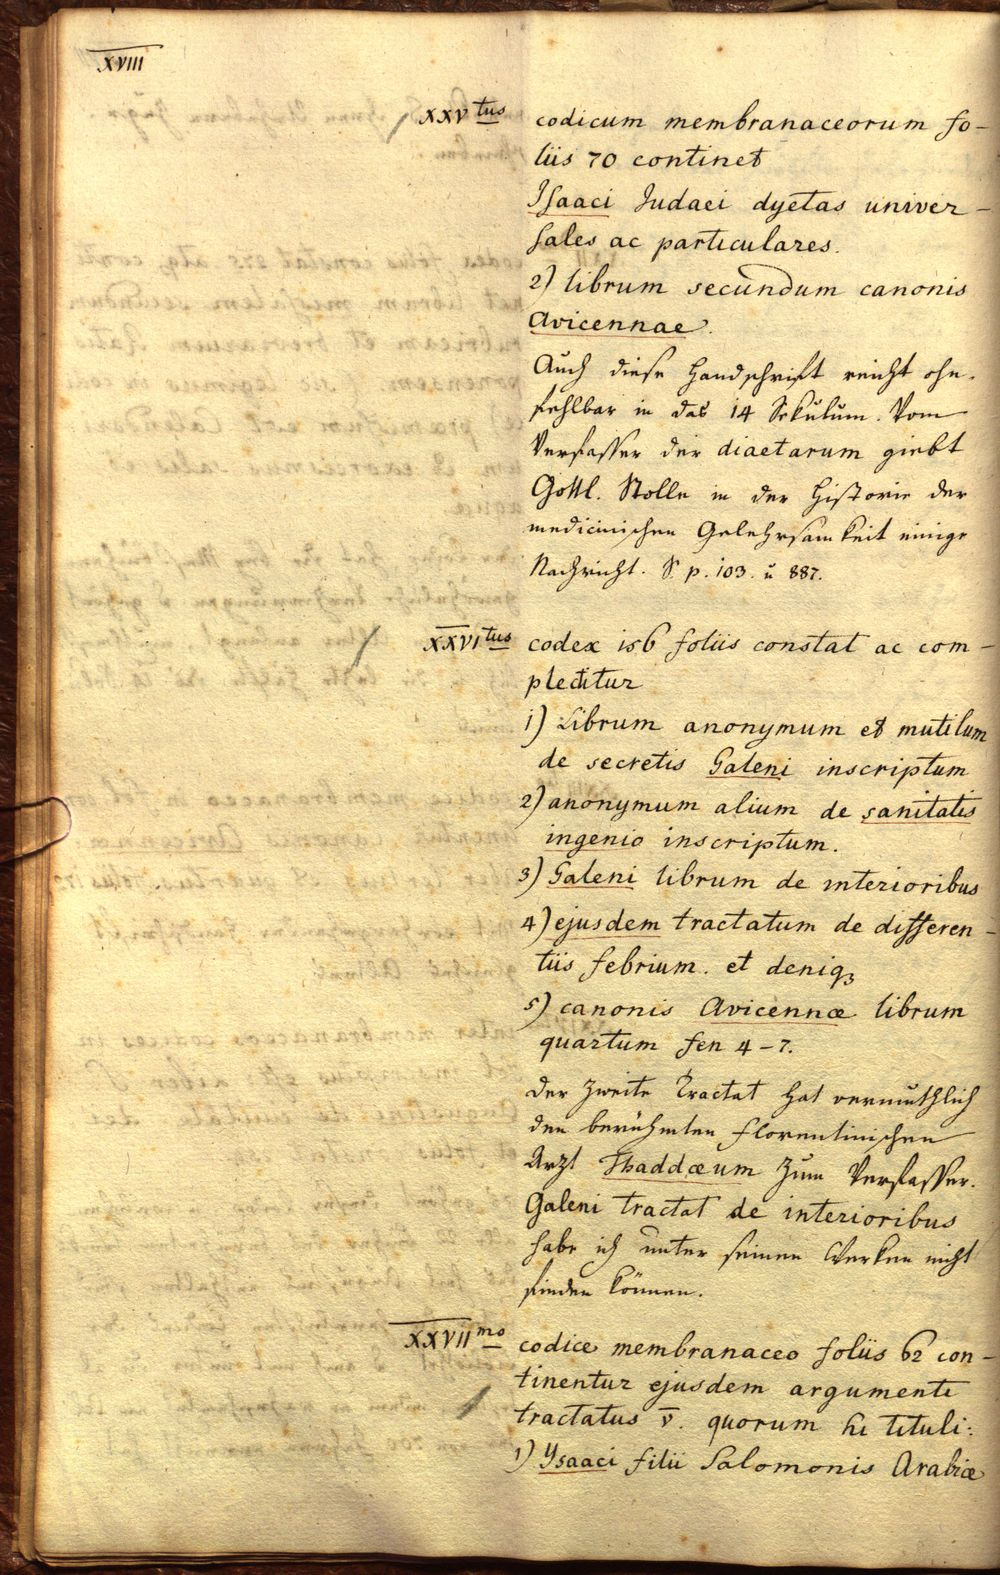 XVIII
XXVtus codicum membranaceorum fo-
liis 70 continet
Isaaci Judaei dyetas univer-
sales ac particulares.
2) librum secundum canonis
Avicennae.
Auch diese Handschrift reicht ohn-
fehlbar in das 14 Sekulum. Vom
Verfasser der diaetarum giebt
Gottl. Stolle in der Historie der
medicinischen Gelehrsamkeit einige
Nachricht. S. p. 103. u 887.
XXVItus codex 156 foliis constat ac com-
plectitur
1) Librum anonymum et mutilum
de secretis Galeni inscriptum
2) anonymum alium de sanitatis
ingenio inscriptum.
3) Galeni librum de interioribus
4) ejusdem tractatum de differen-
tiis febrium. et deniq3
5) canonis Avicennæ librum
quartum fen 4-7.
Der zweite Tractat hat vermuthlich
den berühmten florentinischen
Arzt Thaddæum zum Verfasser.
Galeni tractat de interioribus
habe ich unter seinen Werken nicht
finden können.
XXVIImo codice membranaceo foliis 62 con-
tinentur ejusdem argumenti
tractatus v. quorum hi tituli:
1) Ysaaci filii Salomonis Arabiæ